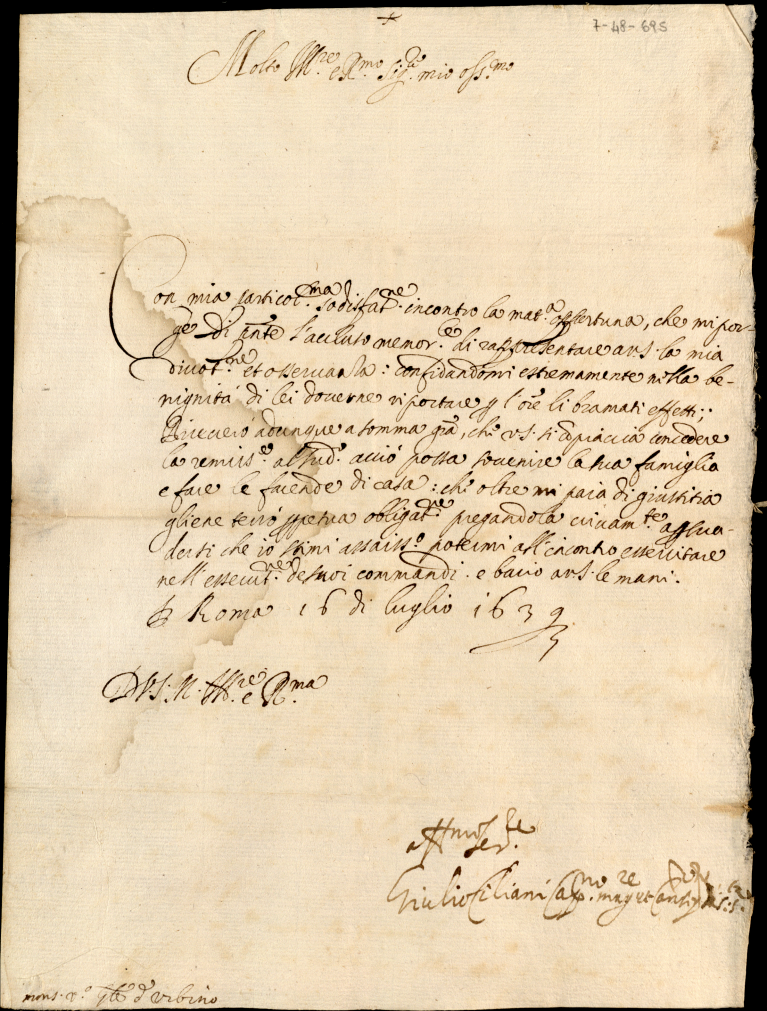 7-48-695
Molto Ill.re e R.mo Sig.re mio oss.mo
Con mia particol.ma sodisfat.ne incontro la mat.a opportuna, che mi por-
ge di pnte l'accluso memor.le di rappresentare a V.S. la mia
divot.ne et osservanza: confidandomi estremamente nella be-
nignità di lei doverne riportare p l'ore li bramati effetti;
Riceverò adunque a somma gra, che V.S. si compiaccia concedere
la remiss.e al sud.o acciò possa sovenire la sua famiglia
e fare le facende di casa: che oltre mi paia di giustitia
gliene terrò ppetua obligat.ne pregandola vivam.te assua-
dersi che io stimi assaiss.o potermi all'incontro essercitare
nell'essecut.ne de suoi commandi. e bacio a V.S. le mani.
Di Roma 16 di luglio 1639
D V.S. M. Ill.re e R.ma
aff.mo se.re
Giulio Ciliani Cap.no
mons. v.o gte d'Urbino